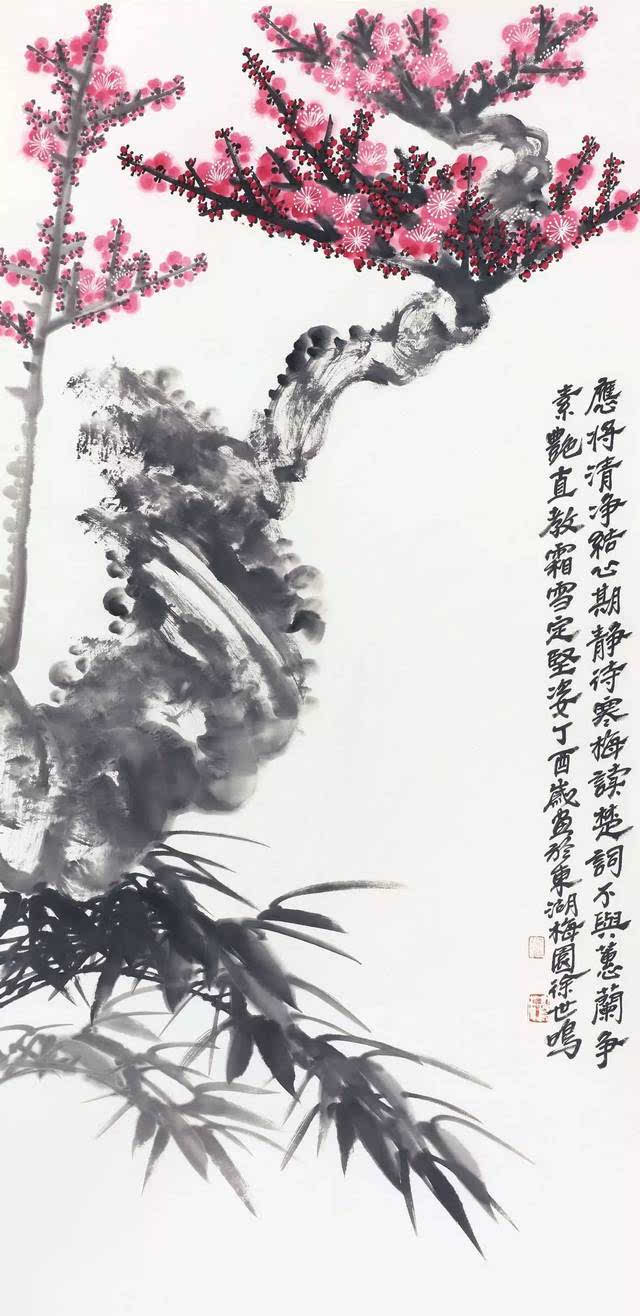 應将清净結心期静待寒梅读楚詞不與蕙蘭争
素艷直教霜雪定堅姿丁酉歲画於東湖梅園徐世鳴